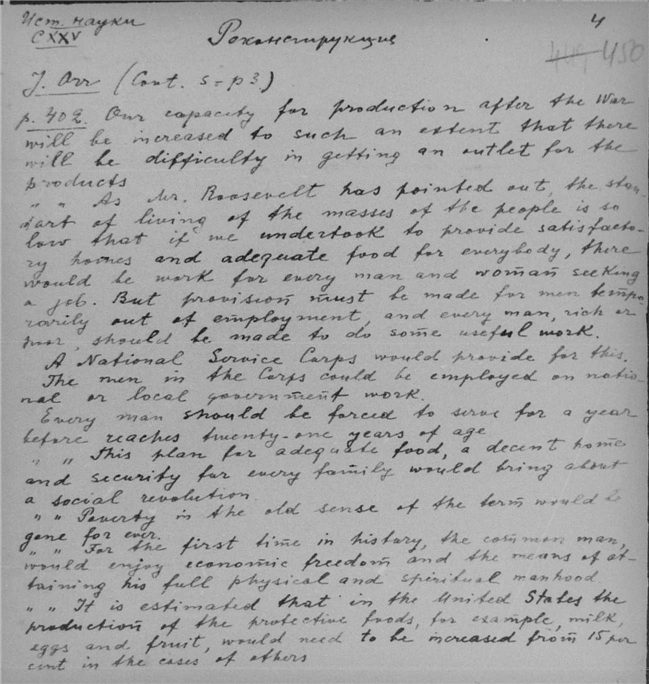 Ист. науки
CXXV
4
Реконструкция
450
J. Orr (Cont. s = p3)
p. 402 Our capacity for production after the War
will be increased to such an extent that there
will be difficulty in getting an outlet for the
products
" " As Mr. Roosevelt has pointed out, the stan-
dart of living of the masses of the people is so
low that if we undertook to provide satisfacto-
ry homes and adequate food for everybody, there
would be work for every man and woman seeking
a job. But provision must be made for men tempo-
rarily out of employment, and every man, rich or
poor, should be made to do some useful work.
A National Service Corps would provide for this.
The men in the Corps could be employed on natio-
nal or local government work.
Every man should be forced to serve for a year
before reaches twenty-one years of age
" " This plan for adequate food, a decent home
and security for every family would bring about
a social revolution.
" " Poverty in the old sense of the term would be
gone for ever.
" " For the first time in history, the common man,
would enjoy economic freedom and the means of at-
taining his full physical and spiritual manhood
" " It is estimated that in the United States the
production of the protective foods, for example, milk,
eggs and fruit, would need to be increased from 15 per
cent in the cases of others